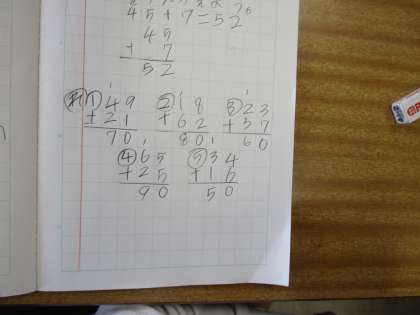 45+7=52
45
+ 7
52
① 49 ② 18 ③ 23
+21 +62 +37
70 80 60
④ 65 ⑤ 34
+25 +16
90 50